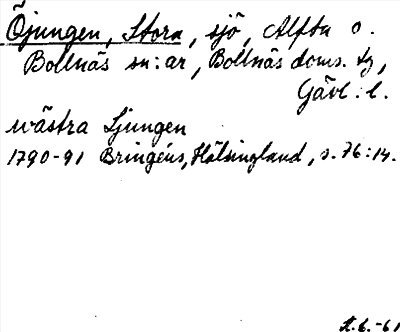 Öjungen, Stora, sjö, Alfta o.
Bollnäs sn:ar, Bollnäs doms. tg,
Gävl. l.
wästra Ljungen
1790-91 Bringéus, Hälsingland, s. 76:14.
A.E.-61